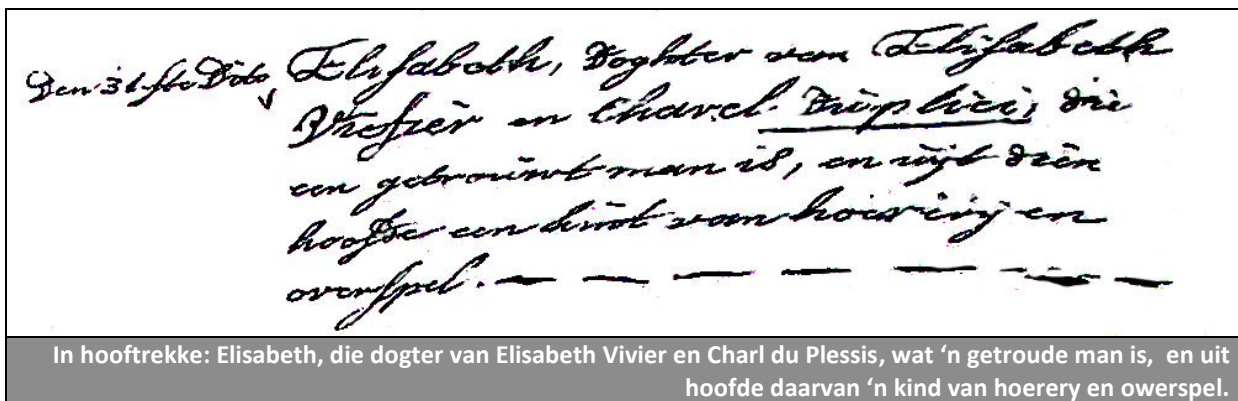 Den 31ste Dito, Elisabeth, Doghter van Elisabeth
Viefier en Charel Duplici, die
een getrouwt man is, en uijt dien
hoofde een kint van hoererij en
overspel. — — — — — — —
In hooftrekke: Elisabeth, die dogter van Elisabeth Vivier en Charl du Plessis, wat ‘n getroude man is, en uit
hoofde daarvan ‘n kind van hoerery en owerspel.